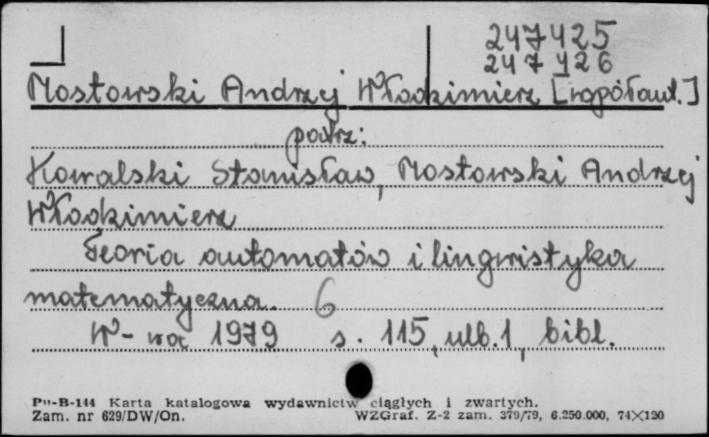 247425
247426
Mostowski Andrzej Włodzimierz [współaut.]
patrz:
Kowalski Stanisław, Mostowski Andrzej
Włodzimierz
Teoria automatów i lingwistyka
matematyczna. 6
W-wa 1979 s. 115, ulb. 1, bibl.
Pu-B-144 Karta katalogowa wydawnictw ciągłych i zwartych.
Zam. nr 629/DW/On. WZGraf. Z-2 zam. 379/79, 6.250.000, 74×120